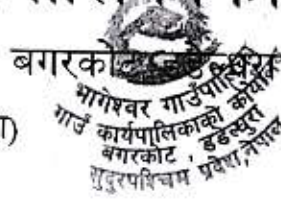 बगरकोट डडेल्धुरा
भागेश्वर गाउँपालिका
गाउँ कार्यपालिकाको कार्यालय
बगरकोट , डडेल्धुरा
सुदूरपश्चिम प्रदेश, नेपाल